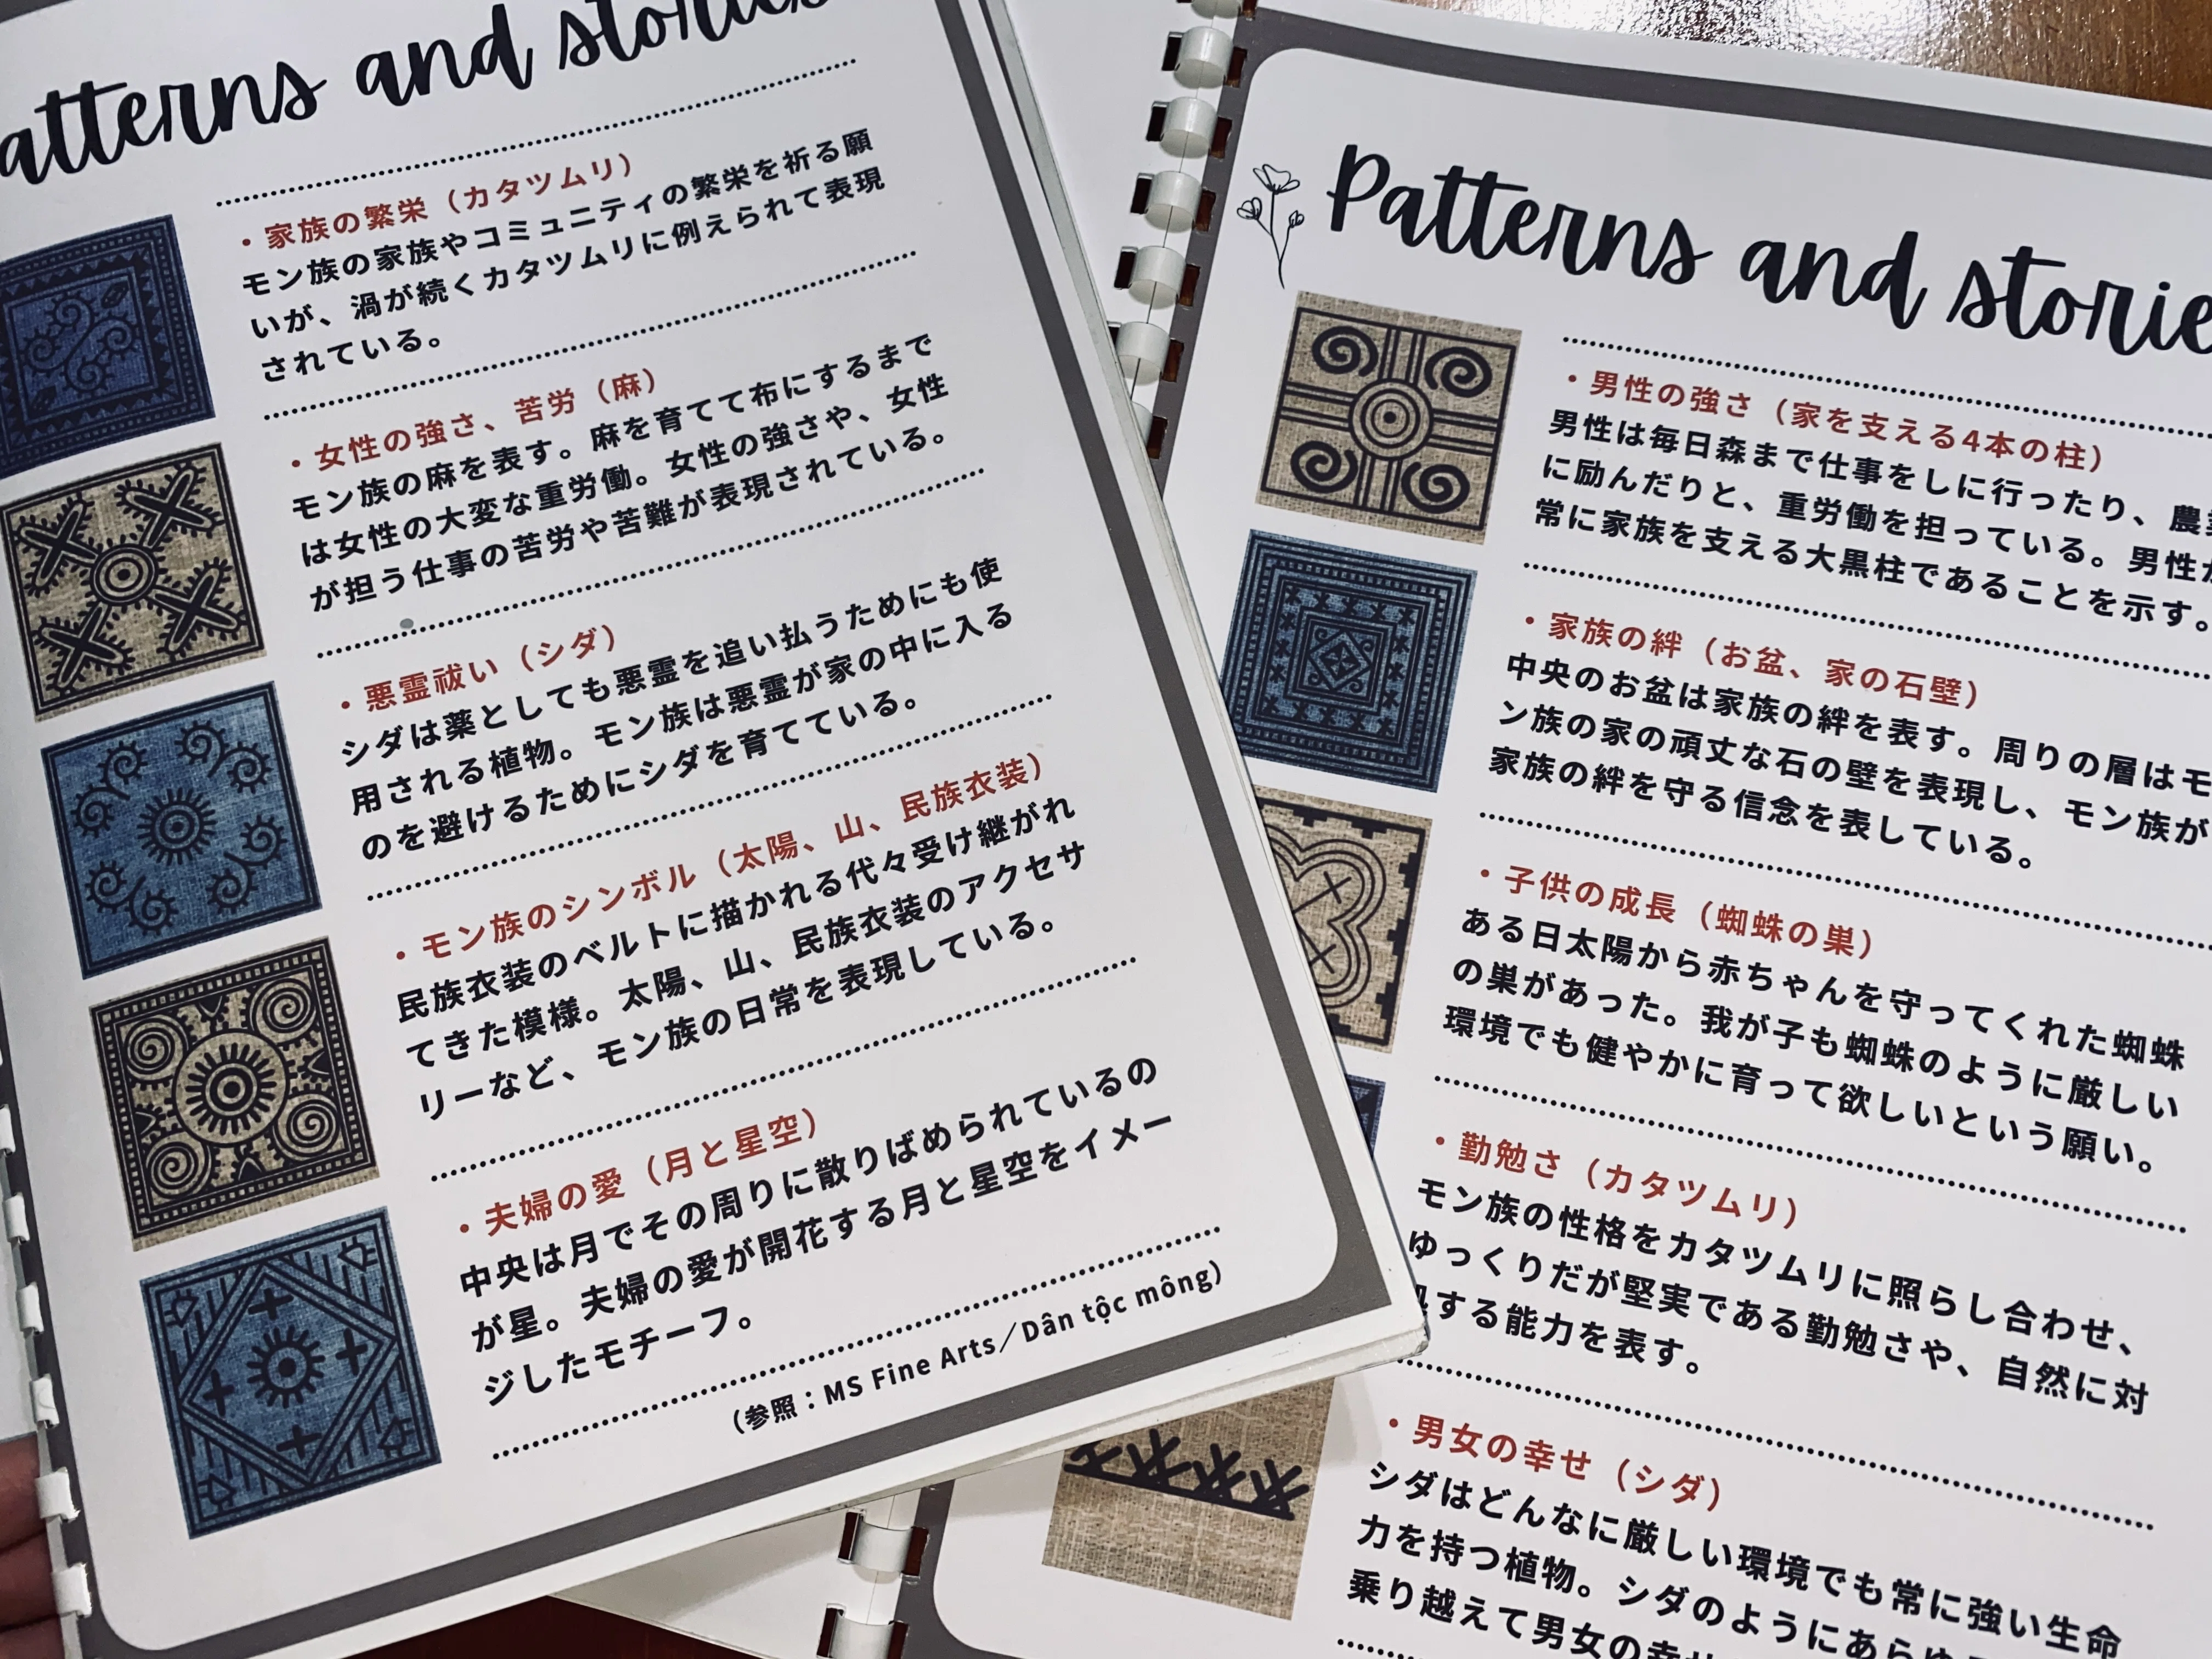 and stories
・家族の繁栄（カタツムリ）
モン族の家族やコミュニティの繁栄を祈る願
いが、渦が続くカタツムリに例えられて表現
されている。
・女性の強さ、苦労（麻）
モン族の麻を表す。麻を育てて布にするまで
は女性の大変な重労働。女性の強さや、女性
が担う仕事の苦労や苦難が表現されている。
・悪霊祓い（シダ）
シダは薬としても悪霊を追い払うためにも使
用される植物。モン族は悪霊が家の中に入る
のを避けるためにシダを育てている。
・モン族のシンボル（太陽、山、民族衣装）
民族衣装のベルトに描かれる代々受け継がれ
てきた模様。太陽、山、民族衣装のアクセサ
リーなど、モン族の日常を表現している。
・夫婦の愛（月と星空）
中央は月でその周りに散りばめられているの
が星。夫婦の愛が開花する月と星空をイメー
ジしたモチーフ。
（参照：MS Fine Arts／Dân tộc mông）
Patterns and
・男性の強さ（家を支える4本の柱）
男性は毎日森まで仕事をしに行ったり、農
に励んだりと、重労働を担っている。男性
常に家族を支える大黒柱であることを示す。
・家族の絆（お盆、家の石壁）
中央のお盆は家族の絆を表す。周りの層はモ
ン族の家の頑丈な石の壁を表現し、モン族が
家族の絆を守る信念を表している。
・子供の成長（蜘蛛の巣）
ある日太陽から赤ちゃんを守ってくれた蜘蛛
の巣があった。我が子も蜘蛛のように厳しい
環境でも健やかに育って欲しいという願い。
・勤勉さ（カタツムリ）
モン族の性格をカタツムリに照らし合わせ、
ゆっくりだが堅実である勤勉さや、自然に対
する能力を表す。
・男女の幸せ（シダ）
シダはどんなに厳しい環境でも常に強い生命
力を持つ植物。シダのように
乗り越えて男女の